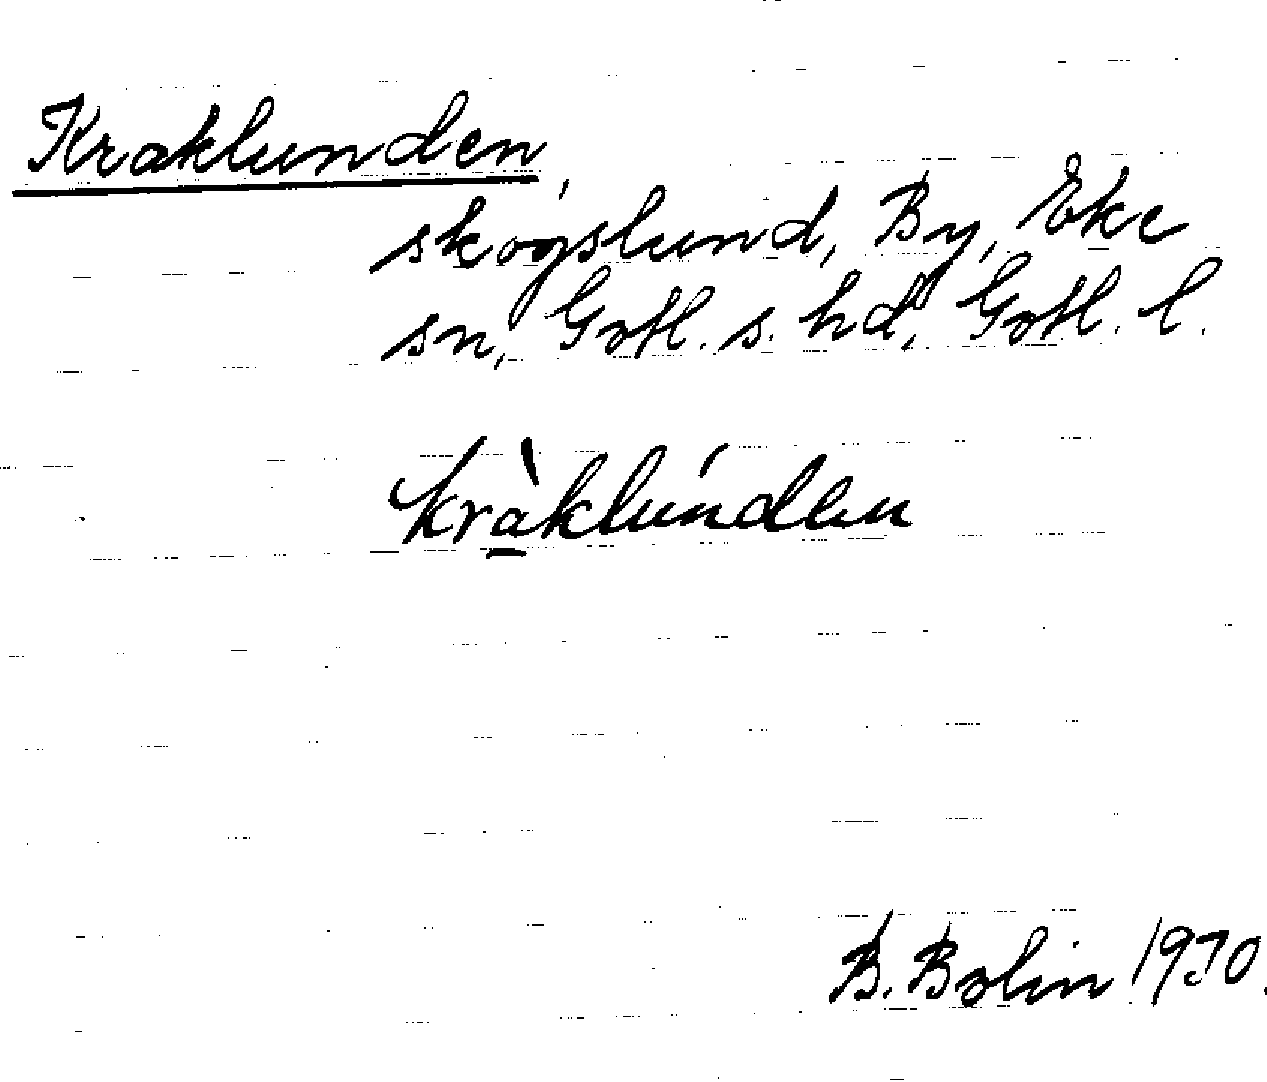 Kraklunden,
skogslund, By, Eke
sn, Gotl. s. hd, Gotl. l.
krà̱klúnden
B. Bolin 1930.